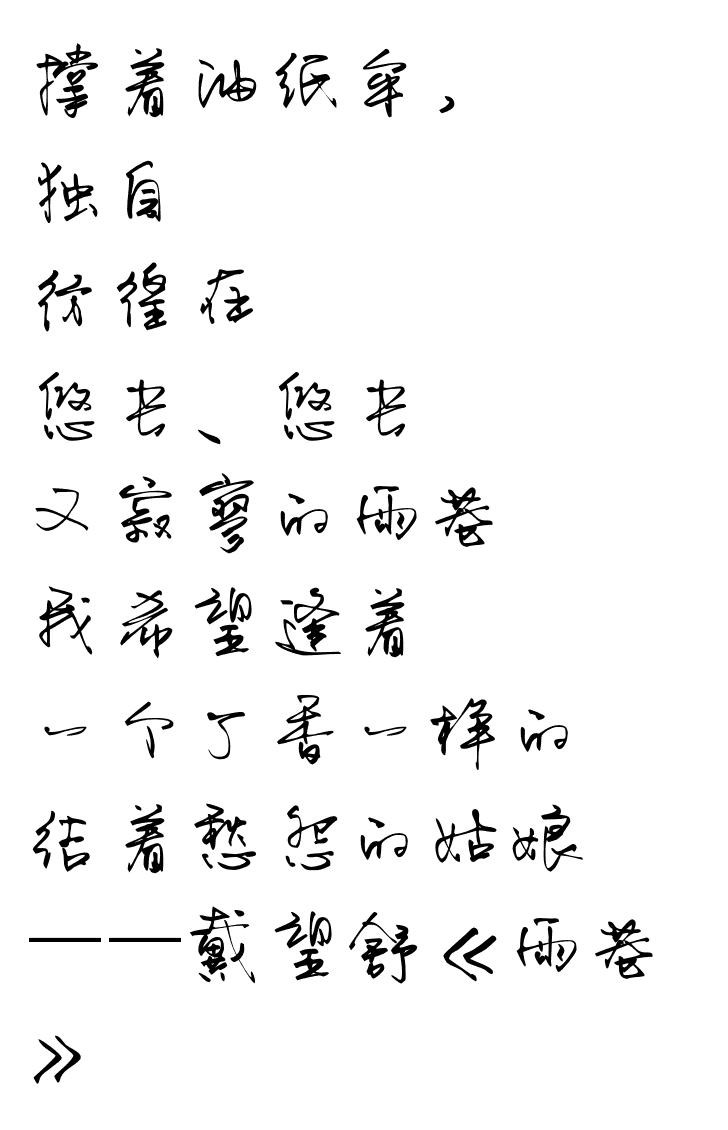 撑着油纸伞，
独自
彷徨在
悠长、悠长
又寂寥的雨巷
我希望逢着
一个丁香一样的
结着愁怨的姑娘
——戴望舒《雨巷
》